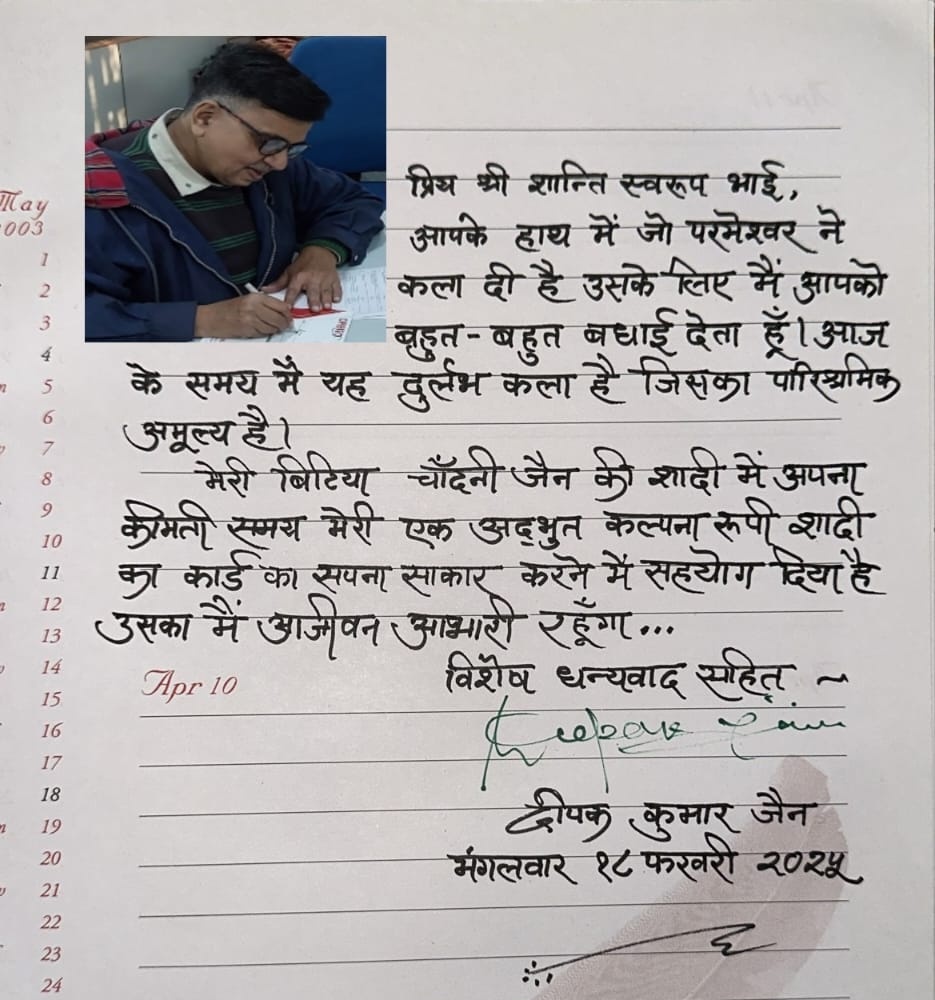 May
2003
1
2
3
4
5
6
7
8
9
10
11
12
13
14
15
16
17
18
19
20
21
22
23
24
प्रिय श्री शान्ति स्वरूप भाई,
आपके हाथ में जो परमेश्वर ने
कला दी है उसके लिए मैं आपको
बहुत-बहुत बधाई देता हूँ। आज
के समय में यह दुर्लभ कला है जिसका पारिश्रमिक
अमूल्य है।
मेरी बिटिया चाँदनी जैन की शादी में अपना
कीमती समय मेरी एक अद्भुत कल्पना रूपी शादी
का कार्ड का सपना साकार करने में सहयोग दिया है
उसका मैं आजीवन आभारी रहूँगा...
Apr 10
विशेष धन्यवाद सहित ~
Deepak Jain
दीपक कुमार जैन
मंगलवार १८ फरवरी २०२५